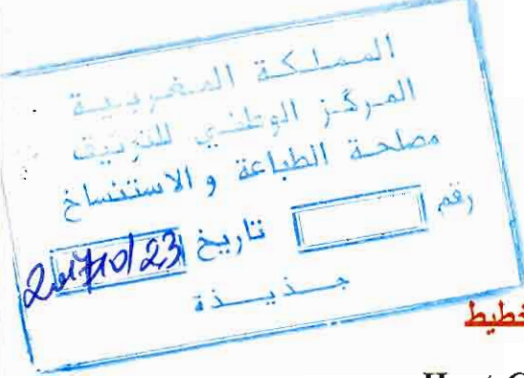 المملكة المغربية
المركز الوطني للتوثيق
مصلحة الطباعة و الاستنساخ
رقم تاريخ 2017/10/23
جذيذة
خطيط